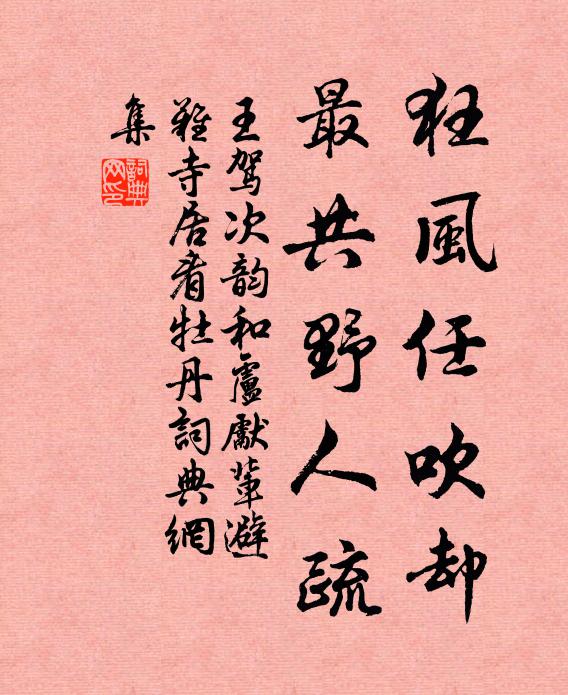 狂風任吹却
最共野人疏
王駕次韵和盧獻輩避
難寺居看牡丹詞典網
集
詞典
网印